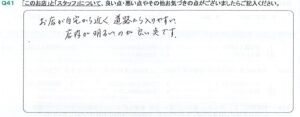 Q41 「このお店」と「スタッフ」について、良い点・悪い点やその他お気づきの点がございましたらご記入ください。
お店が自宅から近く 道路から入りやすい
店内が明るいのが良い点です。